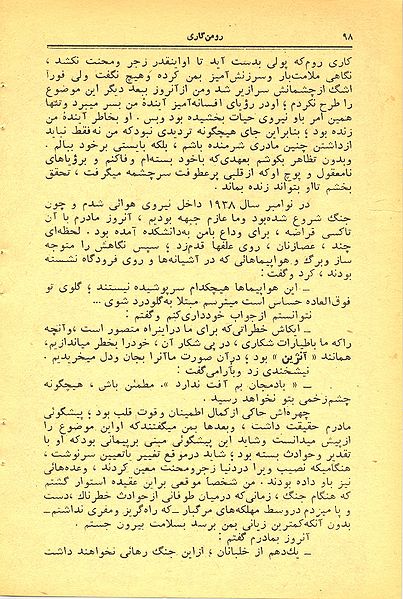 ۹۸
رومن‌گاری
کاری روم‌که پولی بدست آید تا اواینقدر زجر ومحنت نکشد ،
نگاهی ملامت‌بار وسرزنش‌آمیز بمن کرده وهیچ نگفت ولی فورا
اشک ازچشمانش سرازیر شد ومن ازآنروز ببعد دیگر این موضوع
را طرح نکردم ؛ اودر رؤیای افسانه‌آمیز آیندهٔ من بسر میبرد وتنها
همین امر باو نیروی حیات بخشیده بود وبس . او بخاطر آیندهٔ من
زنده بود ؛ بنابراین جای هیچگونه تردیدی نبودکه من نه‌فقط نباید
ازداشتن چنین مادری شرمنده باشم ، بلکه بایستی برخود ببالم .
وبدون تظاهر بکوشم بعهدی‌که باخود بسته‌ام وفاکنم و برؤیاهای
نامعقول و پوچ اوکه ازقلبی پرعطوفت سرچشمه میگرفت ، تحقق
بخشم تااو بتواند زنده بماند .
در نوامبر سال ۱۹۳۸ داخل نیروی هوائی شدم و چون
جنگ شروع شده‌بود وما عازم جبهه بودیم ، آنروز مادرم با آن
تاکسی قراضه ، برای وداع بامن به‌دانشکده آمده بود . لحظه‌ای
چند ، عصازنان ، روی علفها قدم‌زد ؛ سپس نگاهش را متوجه
ساز وبرگ و هواپیماهائی که در آشیانه‌ها و روی فرودگاه نشسته
بودند ، کرد وگفت :
ـ این هواپیماها هیچکدام سرپوشیده نیستند ؛ گلوی تو
فوق‌العاده حساس است میترسم مبتلا به‌گلودرد شوی ...
نتوانستم ازجواب خودداری‌کنم وگفتم :
ـ ایکاش خطراتی‌که برای ما دراینراه متصور است ،وآنچه
راکه ما باطیارات شکاری ، در پی شکار آن ، خودرا بخطر میاندازیم،
همانند « آنژین » بود ؛ درآن صورت ماآنرا بجان ودل میخریدیم .
نیشخندی زد وبآرامی‌گفت :
ـ « بادمجان بم آفت ندارد ». مطمئن باش ، هیچگونه
چشم‌زخمی بتو نخواهد رسید .
چهره‌اش حاکی ازکمال اطمینان وقوت قلب بود ؛ پیشگوئی
مادرم حقیقت داشت ، وبعدها بمن میگفتندکه اواین موضوع را
ازپیش میدانست وشاید این پیشگوئی مبنی برپیمانی بودکه او با
تقدیر وحوادث بسته بود ؛ شاید درموقع تغییر یاتعیین سرنوشت ،
هنگامیکه نصیب ویرا دردنیا زجرومحنت معین کردند ، وعده‌هائی
نیز باو داده بودند . من شخصاً موقعی براین عقیده استوار گشتم
که هنگام جنگ ، زمانی‌که درمیان طوفانی ازحوادث خطرناك ،دست
و پا میزدم دروسط مهلکه‌های مرگبار ـ که راه‌گریز ومفری نداشتم ـ
بدون آنکه‌کمترین زیانی بمن برسد بسلامت بیرون جستم .
آنروز بمادرم گفتم :
ـ یكدهم از خلبانان ؛ ازاین جنگ رهائی نخواهند داشت